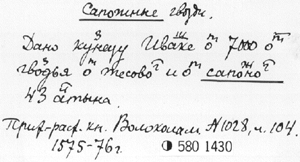 Сапожные гвозди.
Дано кузнецу Ивахе от 7000 от
гвоздья от тесовог и от сапожног
43 алтына.
Прих.-расх. кн. Волоколам. №1028, л. 104.
1575-76 г.
580 1430